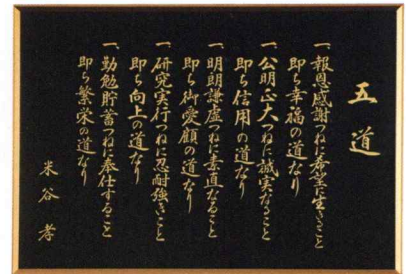 五道
一、報恩感謝つねに希望に生きること
即ち幸福の道なり
一、公明正大つねに誠実なること
即ち信用の道なり
一、明朗謙虚つねに素直なること
即ち御愛顧の道なり
一、研究実行つねに忍耐強きこと
即ち向上の道なり
一、勤勉貯蓄つねに奉仕すること
即ち繁栄の道なり
米谷 孝